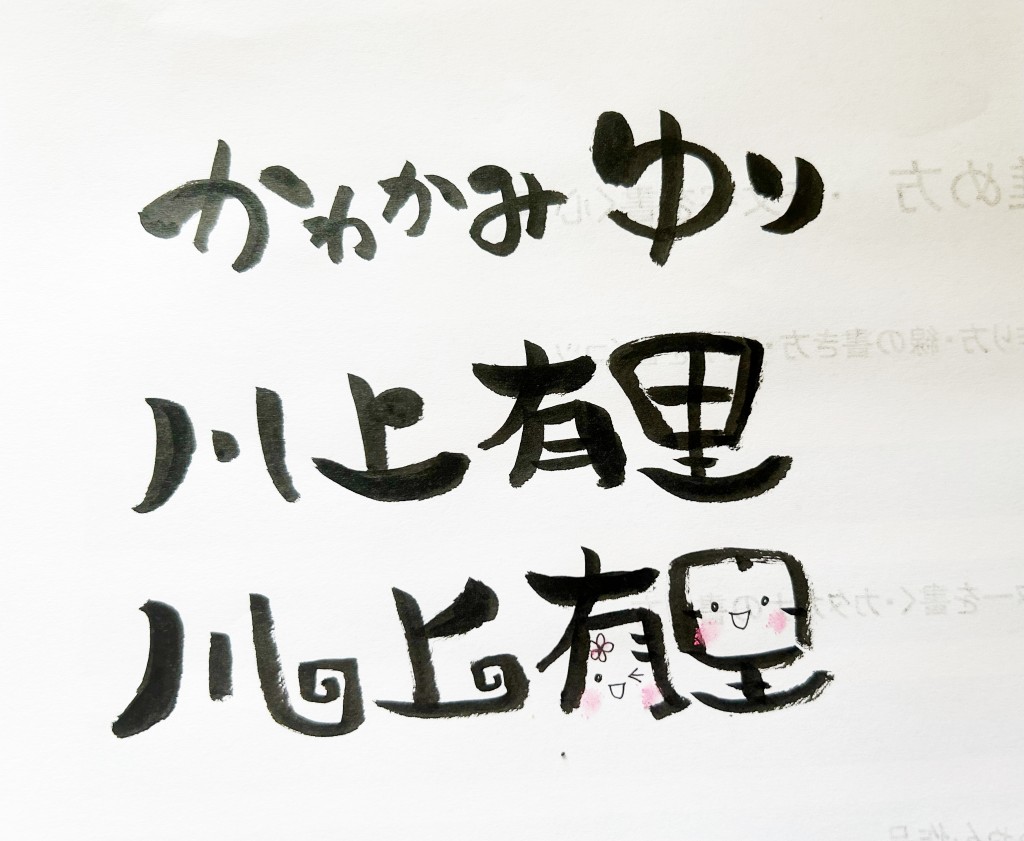 かわかみ ゆり
川上有里
川上有里